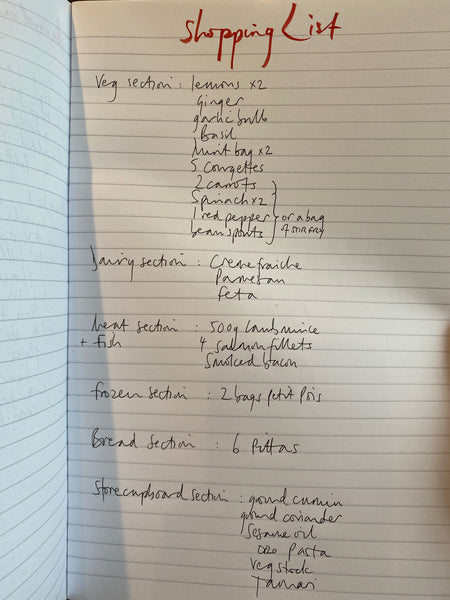 Shopping List
Veg section : lemons x2
Ginger
garlic bulb
Basil
Mint bag x2
5 Courgettes
2 carrots
Spinach x2
1 red pepper or a bag
beansprouts 4 STIR FRY
Dairy section : Creme fraiche
Parmesan
Feta
Meat section : 500g Lamb mince
+ Fish 4 salmon fillets
Smoked bacon
Frozen section : 2 bags petit Pois
Bread section : 6 Pittas
Storecupboard section : ground cumin
ground coriander
Sesame oil
Pasta
Veg stock
Tamari